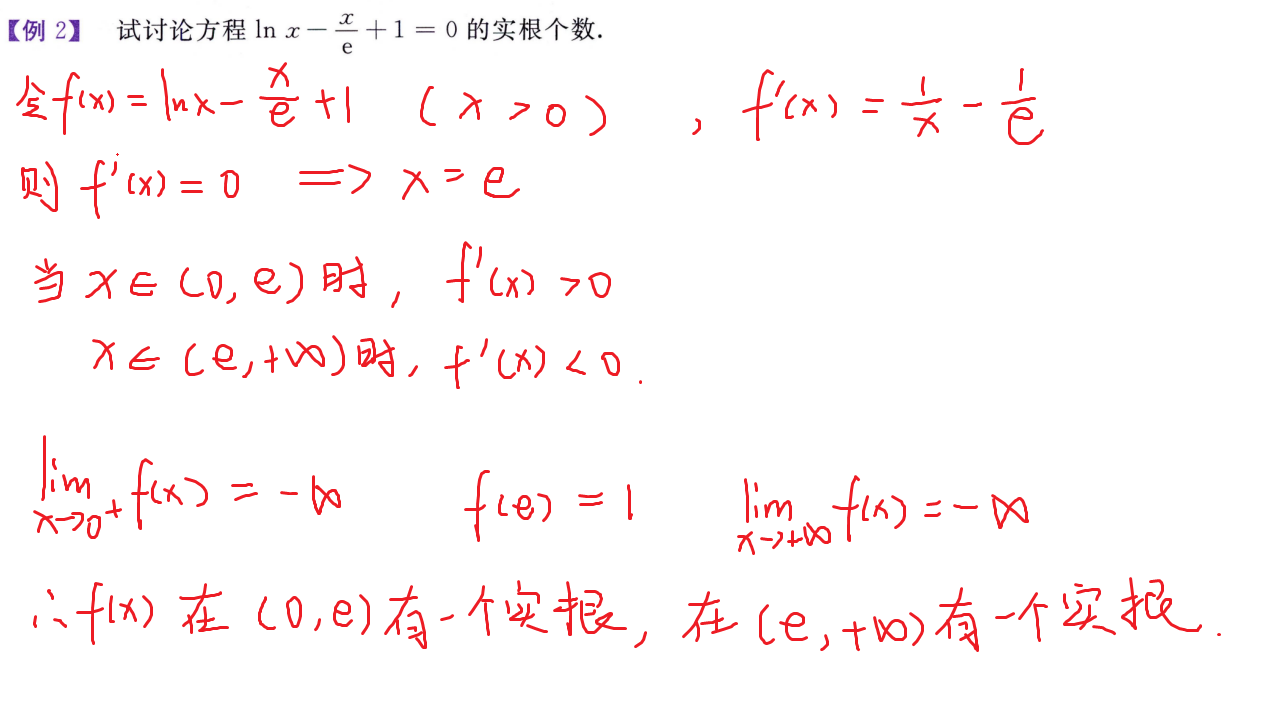 【例 2】 试讨论方程 ln x − x/e + 1 = 0 的实根个数.
令 f(x) = ln x − x/e + 1 ( x > 0 ) , f'(x) = 1/x − 1/e
则 f'(x) = 0 ⟹ x = e
当 x ∈ (0, e) 时, f'(x) > 0
x ∈ (e, +∞) 时, f'(x) < 0.
lim x→0⁺ f(x) = −∞ f(e) = 1 lim x→+∞ f(x) = −∞
∴ f(x) 在 (0, e) 有一个实根, 在 (e, +∞) 有一个实根.